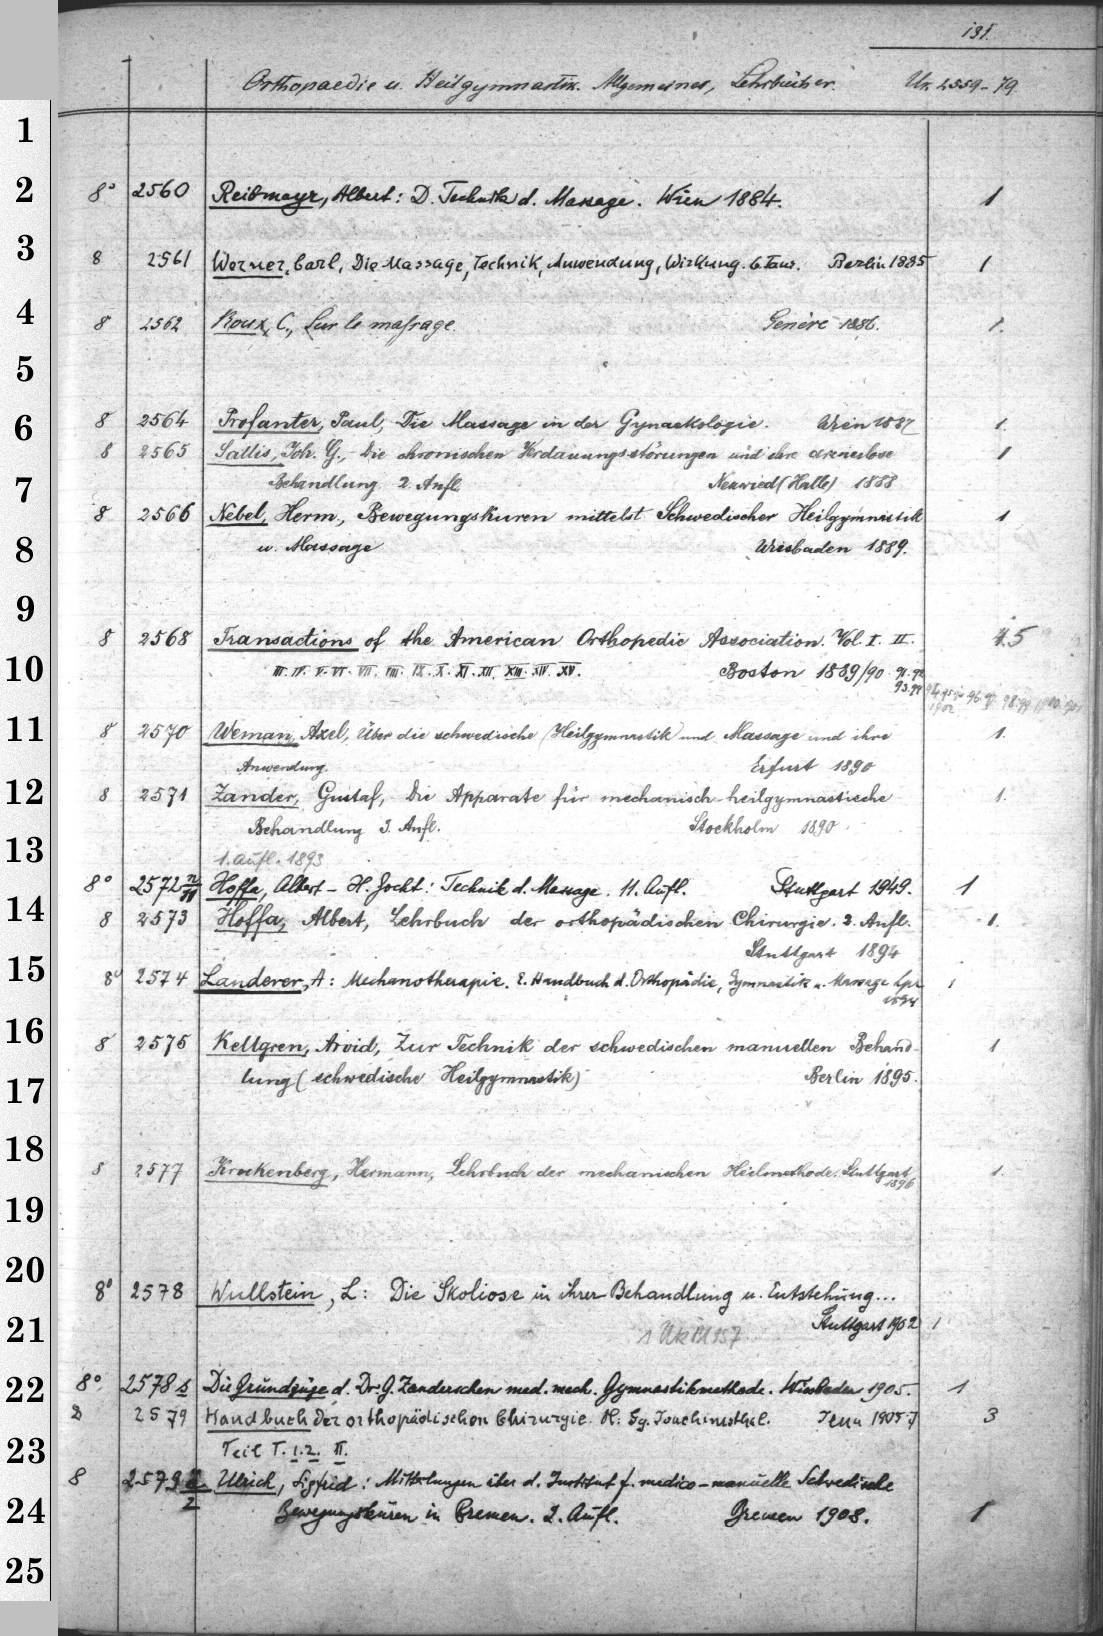 191.
Orthopaedie u. Heilgymnastik. Allgemeines, Lehrbücher. Nr. 2559-79.
1
2 8° 2560 Reibmayr, Albert: D. Technik d. Massage. Wien 1884. 1
3 8 2561 Werner, Carl, Die Massage, Technik, Anwendung, Wirkung. 6. Taus. Berlin 1885 1
4 8 2562 Roux, C., Sur le massage. Genève 1886. 1.
5
6 8 2564 Profanter, Paul, Die Massage in der Gynaekologie. Wien 1887 1.
8 2565 Sallis, Joh. G., Die chronischen Verdauungsstörungen und ihre arzneilose 1
7 Behandlung 2. Aufl. Neuwied (Halle) 1888
8 2566 Nebel, Herm., Bewegungskuren mittelst Schwedischer Heilgymnastik 1
8 u. Massage Wiesbaden 1889.
9
8 2568 Transactions of the American Orthopedic Association. Vol. I. II. 15
10 III. IV. V. VI. VII. VIII. IX. X. XI. XII. XIII. XIV. XV. Boston 1889/90. 91. 92
1902
11 8 2570 Weman, Axel, Über die schwedische Heilgymnastik und Massage und ihre 1.
Anwendung. Erfurt 1890
12 8 2571 Zander, Gustaf, Die Apparate für mechanisch-heilgymnastische 1.
Behandlung 3. Aufl. Stockholm 1890.
13 1. Aufl. 1893
8° 2572 n/11 Hoffa, Albert - H. Jocht: Technik d. Massage. 11. Aufl. Stuttgart 1949. 1
14 8 2573 Hoffa, Albert, Lehrbuch der orthopädischen Chirurgie. 2. Aufl. 1.
Stuttgart 1894
15 8° 2574 Landerer, A: Mechanotherapie. E. Handbuch d. Orthopädie, Gymnastik u. Massage Lpz 1
1894
16 8 2575 Kellgren, Arvid, Zur Technik der schwedischen manuellen Behand- 1
17 lung (schwedische Heilgymnastik) Berlin 1895.
18 8 2577 Krukenberg, Hermann, Lehrbuch der mechanischen Heilmethode. Stuttgart 1.
1896
19
20 8° 2578 Wullstein, L: Die Skoliose in ihrer Behandlung u. Entstehung...
21 Stuttgart 1902 1
22 8°. 2578 b Die Grundzüge d. Dr. G. Zanderschen med. mech. Gymnastikmethode. Wiesbaden 1905. 1
2579 Handbuch der orthopädischen Chirurgie. H: Gg. Joachimsthal. Jena 1905-7 3
23 Teil I. 1. 2. II.
8 2579 Ulrich, Sigfrid: Mitteilungen über d. Institut f. medico-manuelle Schwedische
24 Bewegungskuren in Bremen. 2. Aufl. Bremen 1908. 1
25